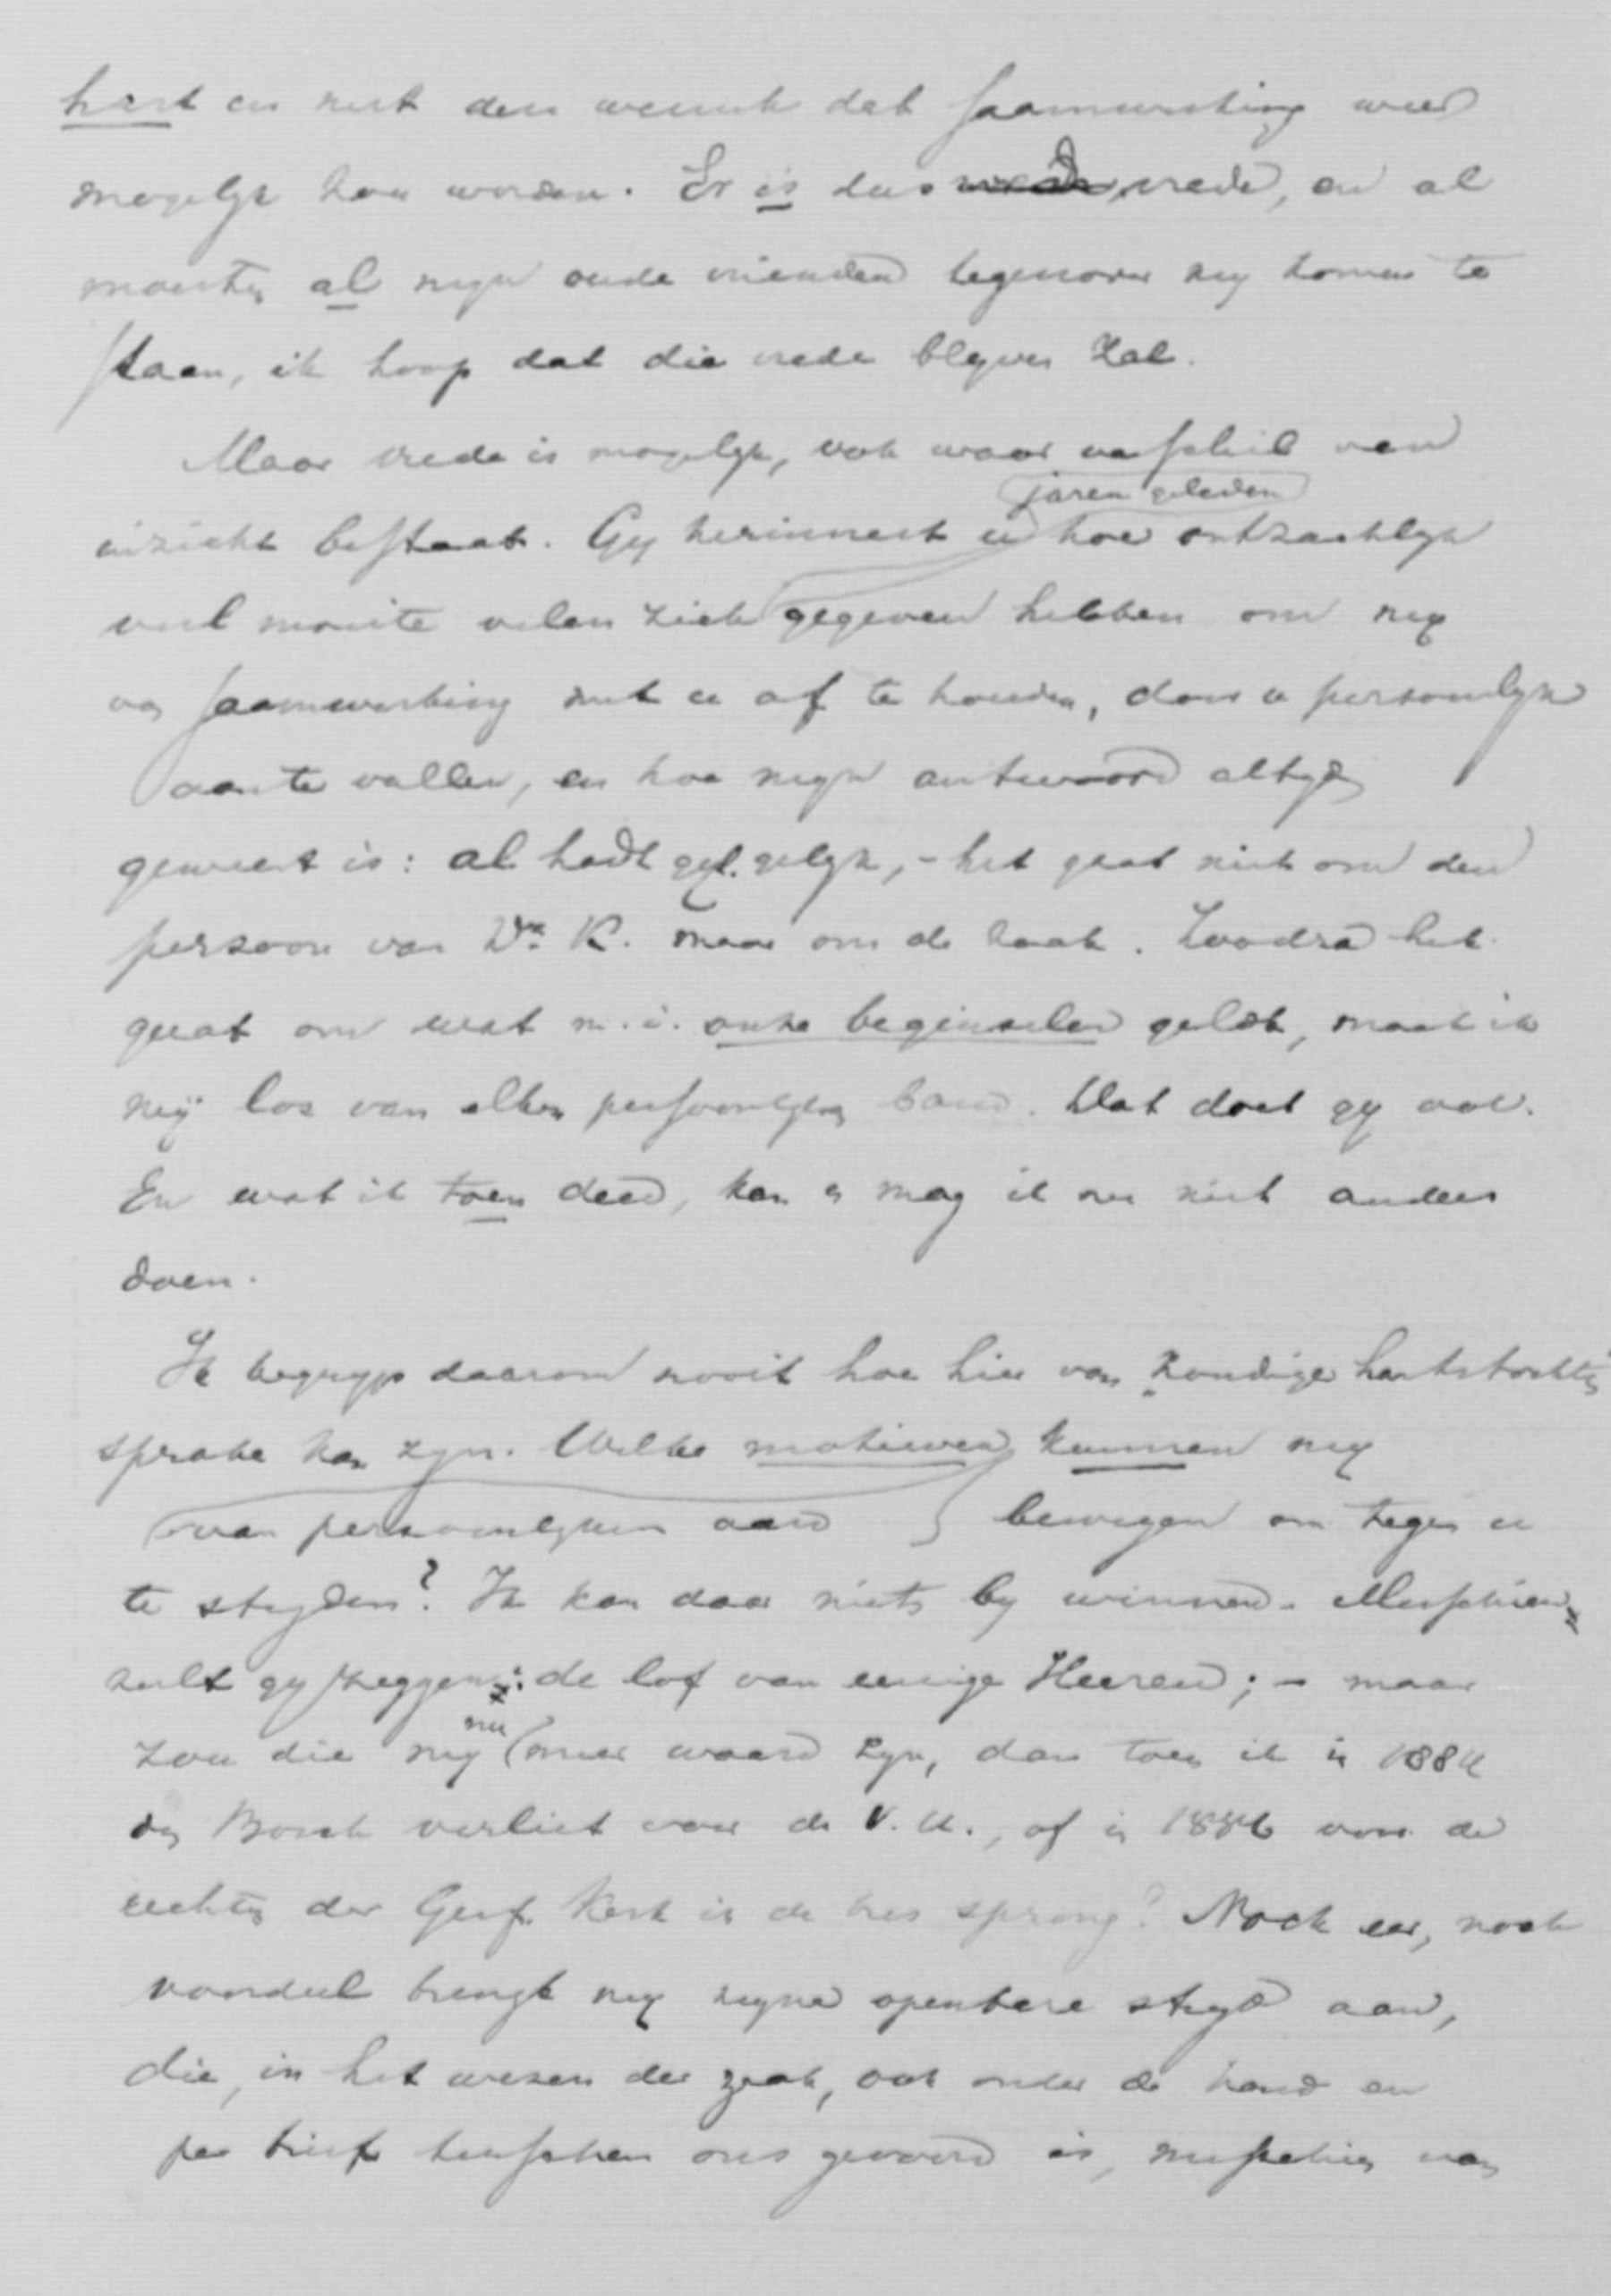 hart en met den wensch dat saamwerking weer
mogelyk kon worden. Er is dus vrede, en al
moesten al myn oude vrienden tegenover my komen te
staan, ik hoop dat die vrede blyven zal.
Maar vrede is mogelyk, ook waar verschil van
jaren geleden
inzicht bestaat. Gy herinnert u hoe ontzachlyk
veel moeite velen zich gegeven hebben om my
van saamwerking met u af te houden, door u persoonlyk
aan te vallen, en hoe myn antwoord altyd
geweest is: al hadt gyl. gelyk, - het gaat niet om den
persoon van Dr. K. maar om de zaak. Zoodra het
gaat om wat m.i. onze beginselen geldt, maak ik
mij los van elken persoonlyken band. Dat doet gy ook.
En wat ik toen deed, kan en mag ik nu niet anders
doen.
Ik begryp daarom nooit hoe hier van "zondige hartstochten"
sprake kan zyn. Welke motieven kunnen my
van persoonlyken aard bewegen om tegen u
te stryden? Ik kan daar niets by winnen. Misschien
zult gy zeggen: de lof van eenige Heeren; - maar
nu
zou die my meer waard zyn, dan toen ik in 1884
den Bosch verliet voor de V.U., of in 1886 voor de
rechten der Geref. Kerk in de bres sprong? Noch eer, noch
voordeel brengt my eene openbare stryd aan,
die, in het wezen der zaak, ook onder de hand en
per brief tusschen ons gevoerd is, misschien van